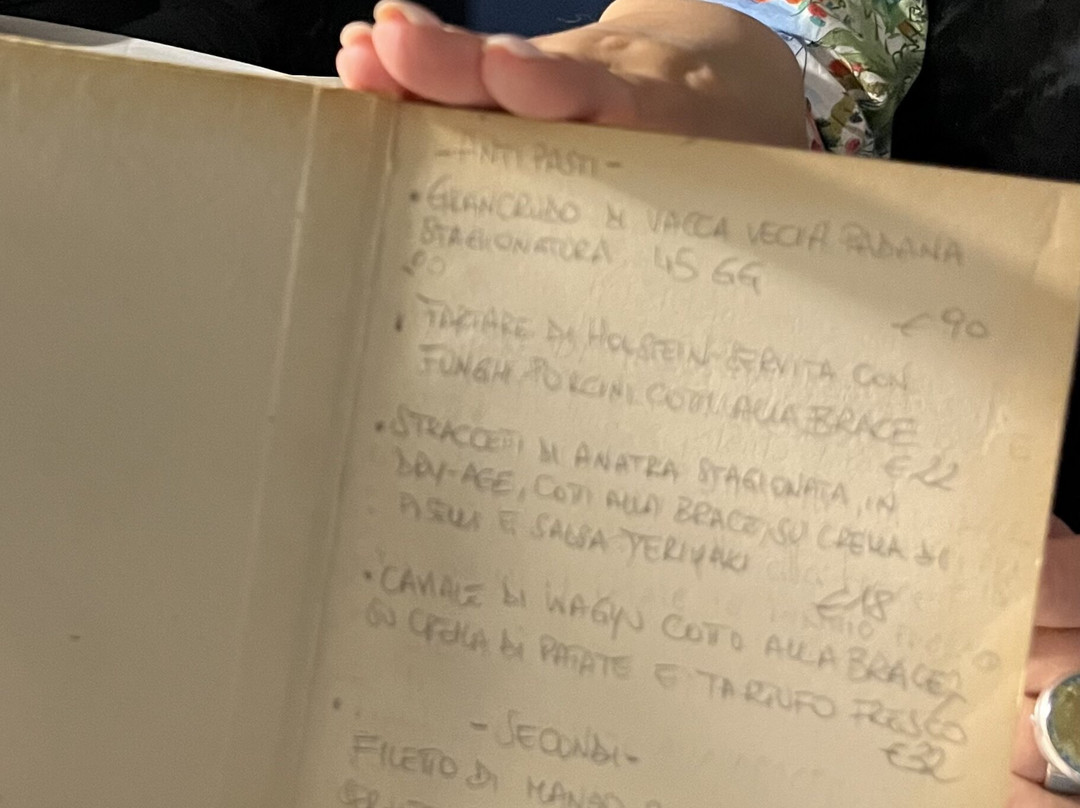 -ANTIPASTI-
• GRANCRUDO DI VACCA VECIA PADANA
STAGIONATURA 45 GG
€ 90
• TARTARE DI HOLSTEIN SERVITA CON
FUNGHI PORCINI COTTI ALLA BRACE
€ 22
• STRACCETTI DI ANATRA STAGIONATA, IN
DRY-AGE, COTTI ALLA BRACE, SU CREMA DI
PISELLI E SALSA TERIYAKI
€ 18
• CAVIALE DI WAGYU COTTO ALLA BRACE,
SU CREMA DI PATATE E TARTUFO FRESCO
€ 32
-SECONDI-
FILETTO DI MANZO